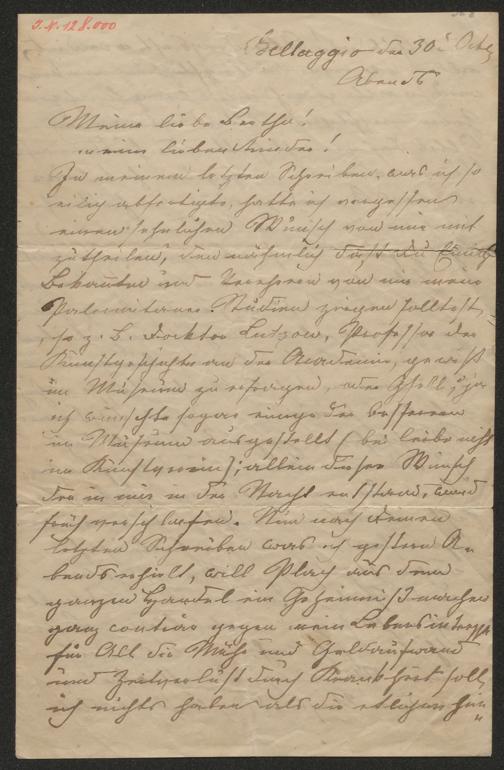 J.N. 128.000
Bellaggio den 30t Octb
Abends
Meine liebe Bertha!
meine lieben Kinder!
In meinem letzten Schreiben, was ich so
eilig abfertigte, hatte ich vergessen
einen sehnlichen Wunsch von mir mit
zutheilen, den nähmlich daß du
Bekannten und Verehrern von mir meine
Palermitaner Studien zeigen solltest,
so z. B. Docktor Lutzow, Professor der
Kunstgeschichte an der Academie, gewiß
im Museum zu erfragen, oder ja
ich wünschte sogar einige der besseren
im Museum ausgestellt (bei leibe nicht
im Kunstverein); allein dieser Wunsch
der in mir in der Nacht entstand, ward
früh verschlafen. Nun nach deinem
letzten Schreiben was ich gestern A-
bends erhielt, will Plach aus dem
ganzen Handel ein Geheimniß machen
ganz contrair gegen mein Lebensinteresse
für All die Mühe und Geldaufwand
und Zeitverlust durch Krankheit soll
ich nichts haben als die etlichen hun